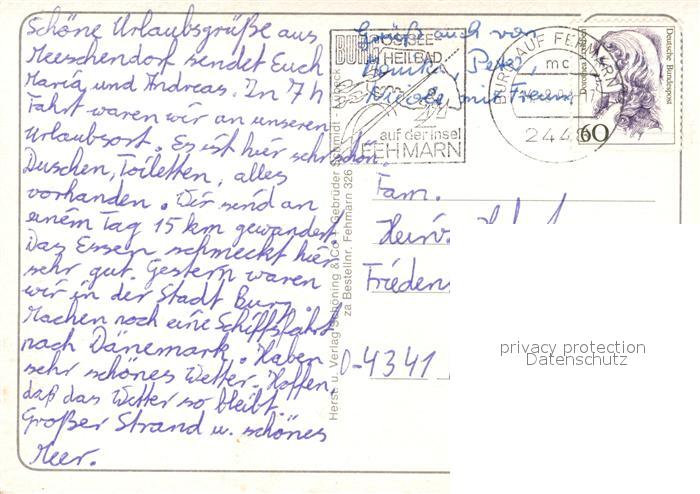 Schöne Urlaubsgrüße aus
Meeschendorf sendet Euch
Maria und Andreas. In 7 h
Fahrt waren wir an unseren
Urlaubsort. Es ist hier sehr schön.
Duschen, Toiletten, alles
vorhanden. Wir send an
einem Tag 15 km gewandert.
Das Essen schmeckt hier
sehr gut. Gestern waren
wir in der Stadt Burg.
Machen noch eine Schiffsfahrt
nach Dänemark. Haben
sehr schönes Wetter. Hoffen,
daß das Wetter so bleibt.
Großer Strand u. schönes
Meer.
Grüße auch von
Peter,
Nicole, mit Freund
BURG
OSTSEE
HEILBAD
auf der Insel
FEHMARN
BURG AUF FEHMARN
mc
244
60
Deutsche Bundespost
Herst. u. Verlag Schöning & Co + Gebrüder Schmidt - Lübeck
za Bestellnr. Fehmarn 326
Fam.
Frieden
O-4341
privacy protection
Datenschutz